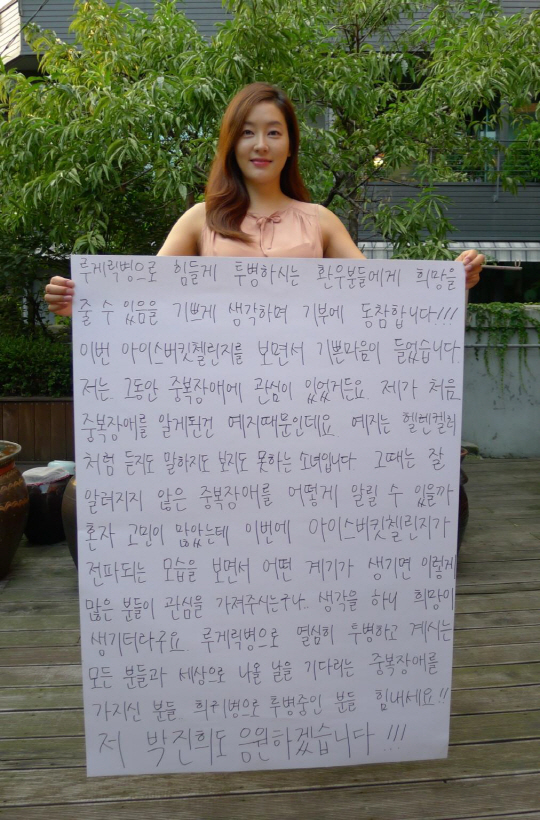 루게릭병으로 힘들게 투병하시는 환우분들에게 희망을
줄 수 있음을 기쁘게 생각하며 기부에 동참합니다!!!
이번 아이스버킷챌린지를 보면서 기쁜마음이 들었습니다.
저는 그동안 중복장애에 관심이 있었거든요. 제가 처음
중복장애를 알게된건 예지때문인데요. 예지는 헬렌켈러
처럼 듣지도 말하지도 보지도 못하는 소녀입니다. 그때는 잘
알려지지 않은 중복장애를 어떻게 알릴 수 있을까
혼자 고민이 많았는데 이번에 아이스버킷챌린지가
전파되는 모습을 보면서 어떤 계기가 생기면 이렇게
많은 분들이 관심을 가져주시는구나.. 생각을 하니 희망이
생기더라구요. 루게릭병으로 열심히 투병하고 계시는
모든 분들과 세상으로 나올 날을 기다리는 중복장애를
가지신 분들 희귀병으로 투병중인 분들 힘내세요!!
저 박진희도 응원하겠습니다!!!